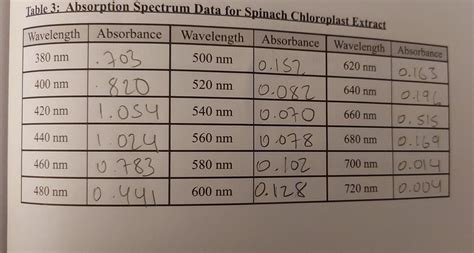 Table 3: Absorption Spectrum Data for Spinach Chloroplast Extract
Wavelength Absorbance Wavelength Absorbance Wavelength Absorbance
380 nm .703 500 nm 0.152 620 nm 0.163
400 nm .820 520 nm 0.082 640 nm 0.196
420 nm 1.054 540 nm 0.070 660 nm 0.515
440 nm 1.024 560 nm 0.078 680 nm 0.169
460 nm 0.783 580 nm 0.102 700 nm 0.014
480 nm 0.441 600 nm 0.128 720 nm 0.004